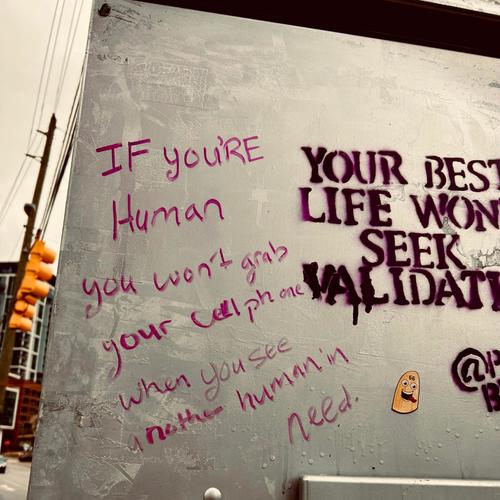 IF YOU'RE
Human
you won't grab
your cellphone
when you see
another human in
need.
YOUR BEST
LIFE WON
SEEK
VALIDAT
@